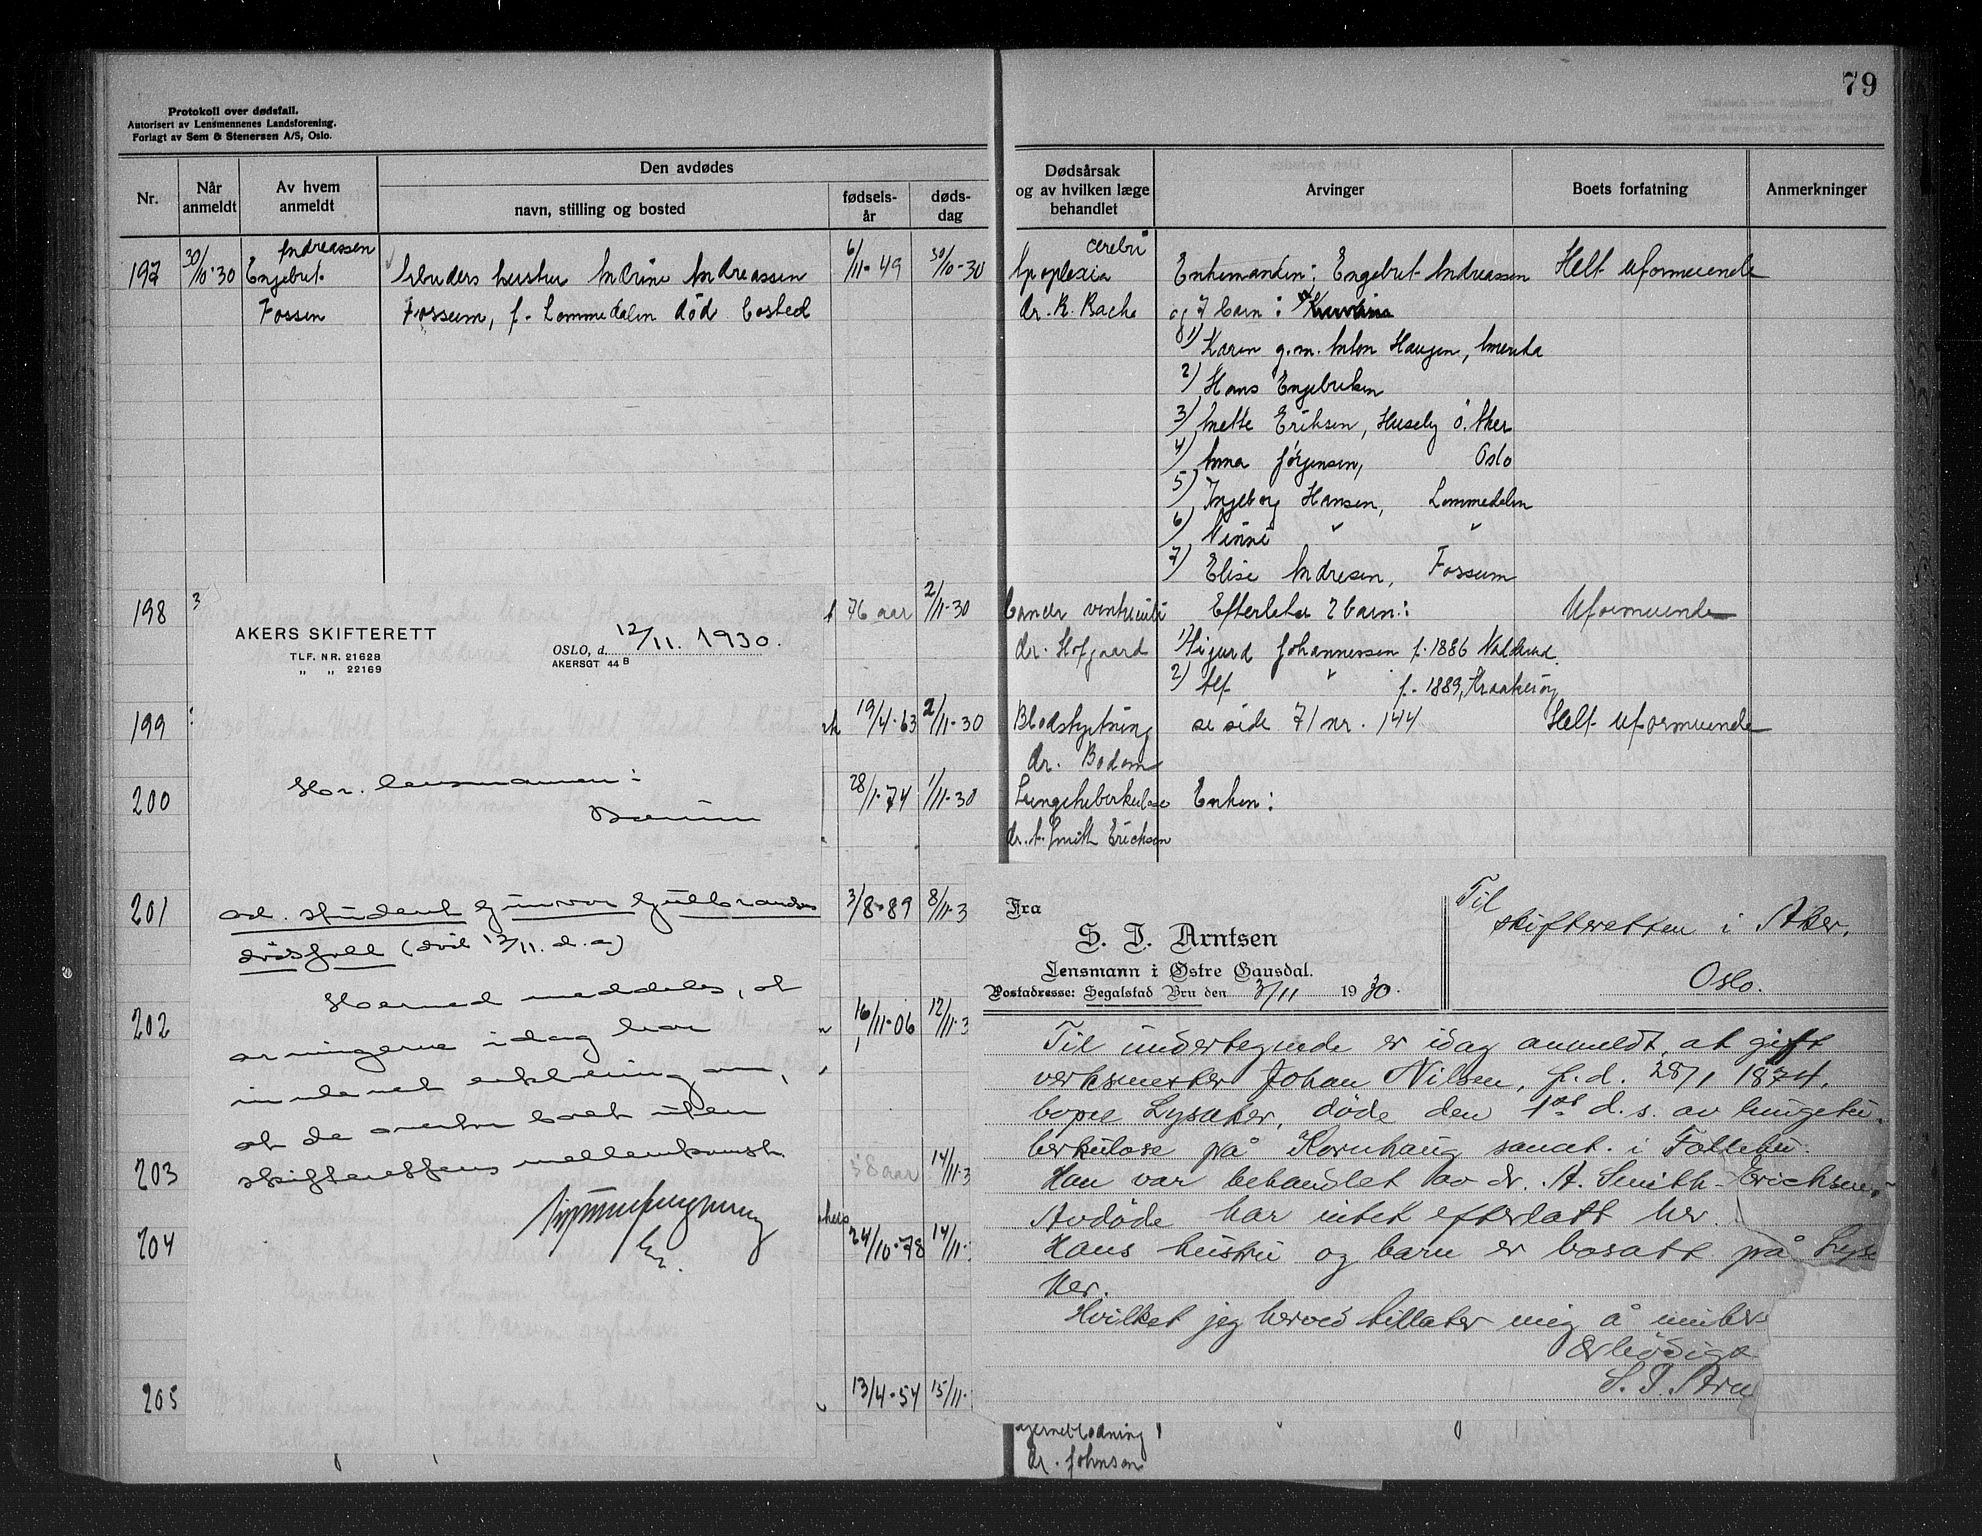 79
Protokoll over dødsfall.
Autorisert av Lensmennenes Landsforening.
Forlagt av Sem & Stenersen A/S, Oslo.
Nr.
Når anmeldt
Av hvem anmeldt
Den avdødes
navn, stilling og bosted
fødsels-år
døds-dag
Dødsårsak og av hvilken læge behandlet
Arvinger
Boets forfatning
Anmerkninger
197 30/10-30 Engebret Andreassen Fossum
Arbeiders hustru Andrine Andreassen
Fossum, f. Lommedalen død bosted
6/11-49 30/10-30
Apoplexia cerebri
dr. R. Backe
Enkemanden: Engebret Andreassen
og 7 barn:
1) Karen g.m. Anton Haugen, Amerika
2) Hans Engebretsen
3) Mette Eriksen, Huseby ö. Aker
4) Anna Jörgensen, Oslo
5) Ingeborg Hansen, Lommedalen
6) Ninni " "
7) Elise Andresen, Fossum
Helt uformuende
198 3 76 aar 2/11-30
Cancer ventriculi
dr. Hofgaard
Efterlater 2 barn:
1) Sigurd Johannessen f. 1886
2) Alf " f. 1889, Kraakerøy
Uformuende
199 19/4-63 2/11-30
Blodstyrtning
dr. Bodom
se side 71 nr. 144
Helt uformuende
200 28/1-74 1/11-30
Lungetuberkulose
dr. A. Smith Erichsen
Enken:
201 3/8-89 8/11-3
202 16/11-06 12/11-3
203 58 aar 14/11-3
204 24/10-78 14/11-
205 13/4-54 15/11-
Hjerneblödning
dr. Johnson
AKERS SKIFTERETT
TLF. NR. 21628
" " 22169
OSLO, d. 12/11. 1930.
AKERSGT 44 B
Hr. lensmannen i
Bærum
ad. student Gunvor Gulbrandsens
dödsfall (død 12/11. d.a.)
Herved meddeles, at
arvingerne idag har
inlevert erklæring om,
at de overtar boet uten
skifterettens mellemkomst.
Fra
S. J. Arntsen
Lensmann i Østre Gausdal.
Postadresse: Segalstad Bru den 3/11 1930.
Til
skifteretten i Aker,
Oslo.
Til undertegnede er idag anmeldt, at gift
verksmester Johan Nilsen, f. d. 28/1 1874,
bopæl Lysaker, döde den 1ste d.s. av lungetu-
berkulose på Kornhaug sanat. i Follebu.
Han var behandlet av dr. A. Smith-Erichsen.
Avdöde har intet efterlatt her.
Hans hustru og barn er bosatt på Lysa
ker.
Hvilket jeg herved tillater mig å innber
Ærbödigst
S. J. Arn